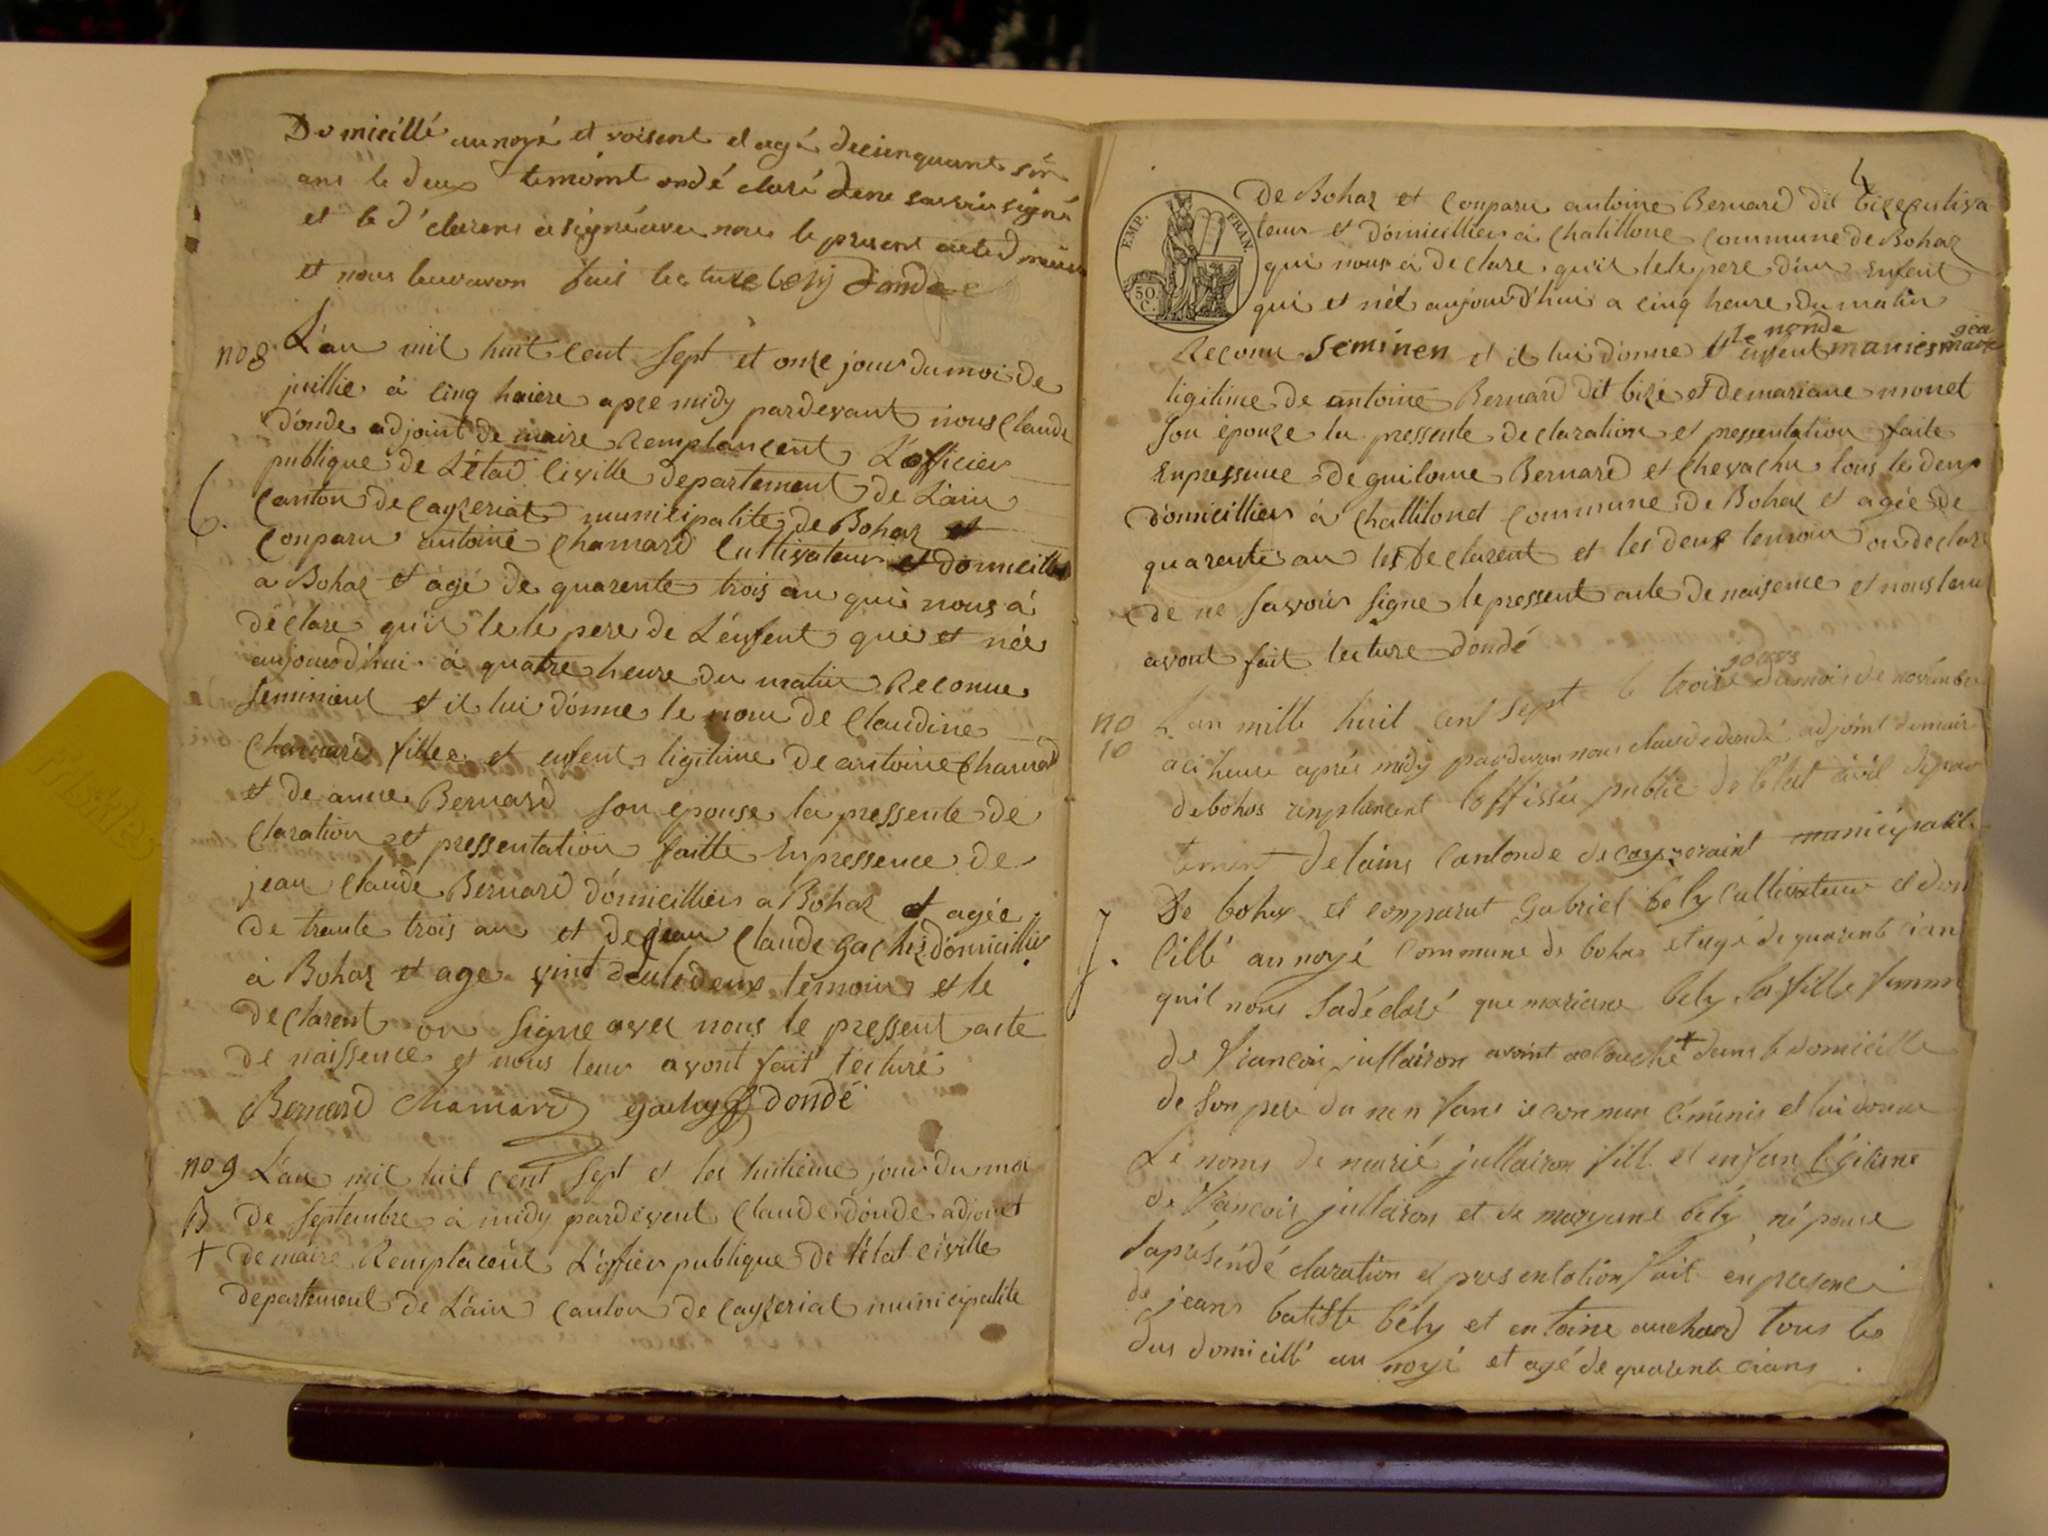 Domicillé aunoyé et voisent et agé decienquante sin
ans le deux temoint ondé claré dene savoir signé
et le d'clarens a signé avec nous le presens acte d
et nous leuravon fait lecture bely dondé
no 8 L'an mil huit cent sept et onze jour du moi de
juillie à cinq haiere apre midy pardevant nous claude
d'onde adjoint de maire Remplancent L'officier
publique de L'étad civille departement de L'ain
canton de cayzeriat municipalite de Bohaz et
conparu antoine chamard cultivateur et domicillié
a Bohaz et agé de quarente trois an qui nous á
déclare qu'il le le pere de L'enfent qui et née
aujourd'hui à quatre heure du matin Reconue
seminient et il lui donne le nom de claudine
chamard fillee et enfent ligitime de antoine chamard
et de anne Bernard son épouse la pressente de
claration et pressentation faitte Enpressence de
jean claude Bernard d'omicillier a Bohaz et agée
de trante trois an et de jean claude gachiz d'omicillier
à Bohaz et age vint deuledeux temoin et le
declarent on signe avec nous le pressent acte
de naissence et nous leur avont fait lecture
Bernard chamard gachy dondé
no 9 L'an mil huit cent sept et les huitieme jour du moi
B de septembre à midy pardevent claude d'onde adjoint
+ de maire Remplacent L'offier publique de l'état civille
departement de L'ain canton de cayzeriat municipalite
4
EMP. FRAN.
50 C.
De Bohaz et conparu antoine Bernard dit bize cultiva
teur et d'omicillier à chatillone commune de Bohaz
qui nous à declare qu'il le le pere d'un enfent
qui et néé aujourd'hui a cinq heure du matin
le nonde gea
Reconu seminen et il lui donne enfent marie
ligitime de antoine Bernard dit bize et de mariane monet
son épouze la pressente declaration et pressentation faite
Enpressence de guilome Bernard et chevachu tous le deux
d'omicillier à challilonet commune de Bohaz et agée de
quarente an les declarent et les deux temoin on declare
de ne savoir signe le pressent acte de naisence et nous leur
avont fait lecture dondé
jours
no 10 L'an mille huit cent sept le trois du mois de novembre
a ci heure aprés midy pardevan nous claude dondé adjoint demaire
debohas remplacent l'offissié public de l'état civil depar
tement delains cantonde de cayzeraint municipalité
De bohaz et comparut gabriel bely cultivateur et dom
cillé aunoyé commune de bohas et agé de quarente cian
J. quil nous Sadéclaré que mariane bely sa fille femme
de francois jullairon avoint acouché + dans le domicille
de son pere du nen fans reconnu céminis et lui donne
Le noms de marié jullairon fill et enfan légitime
de francois jullairon et de maryane bély népouse
lapreséndé claration et presentation fait enpresence
de jeans batiste bély et entoine auchard tous les
dus domicillé au noyé et agé de quarente cians